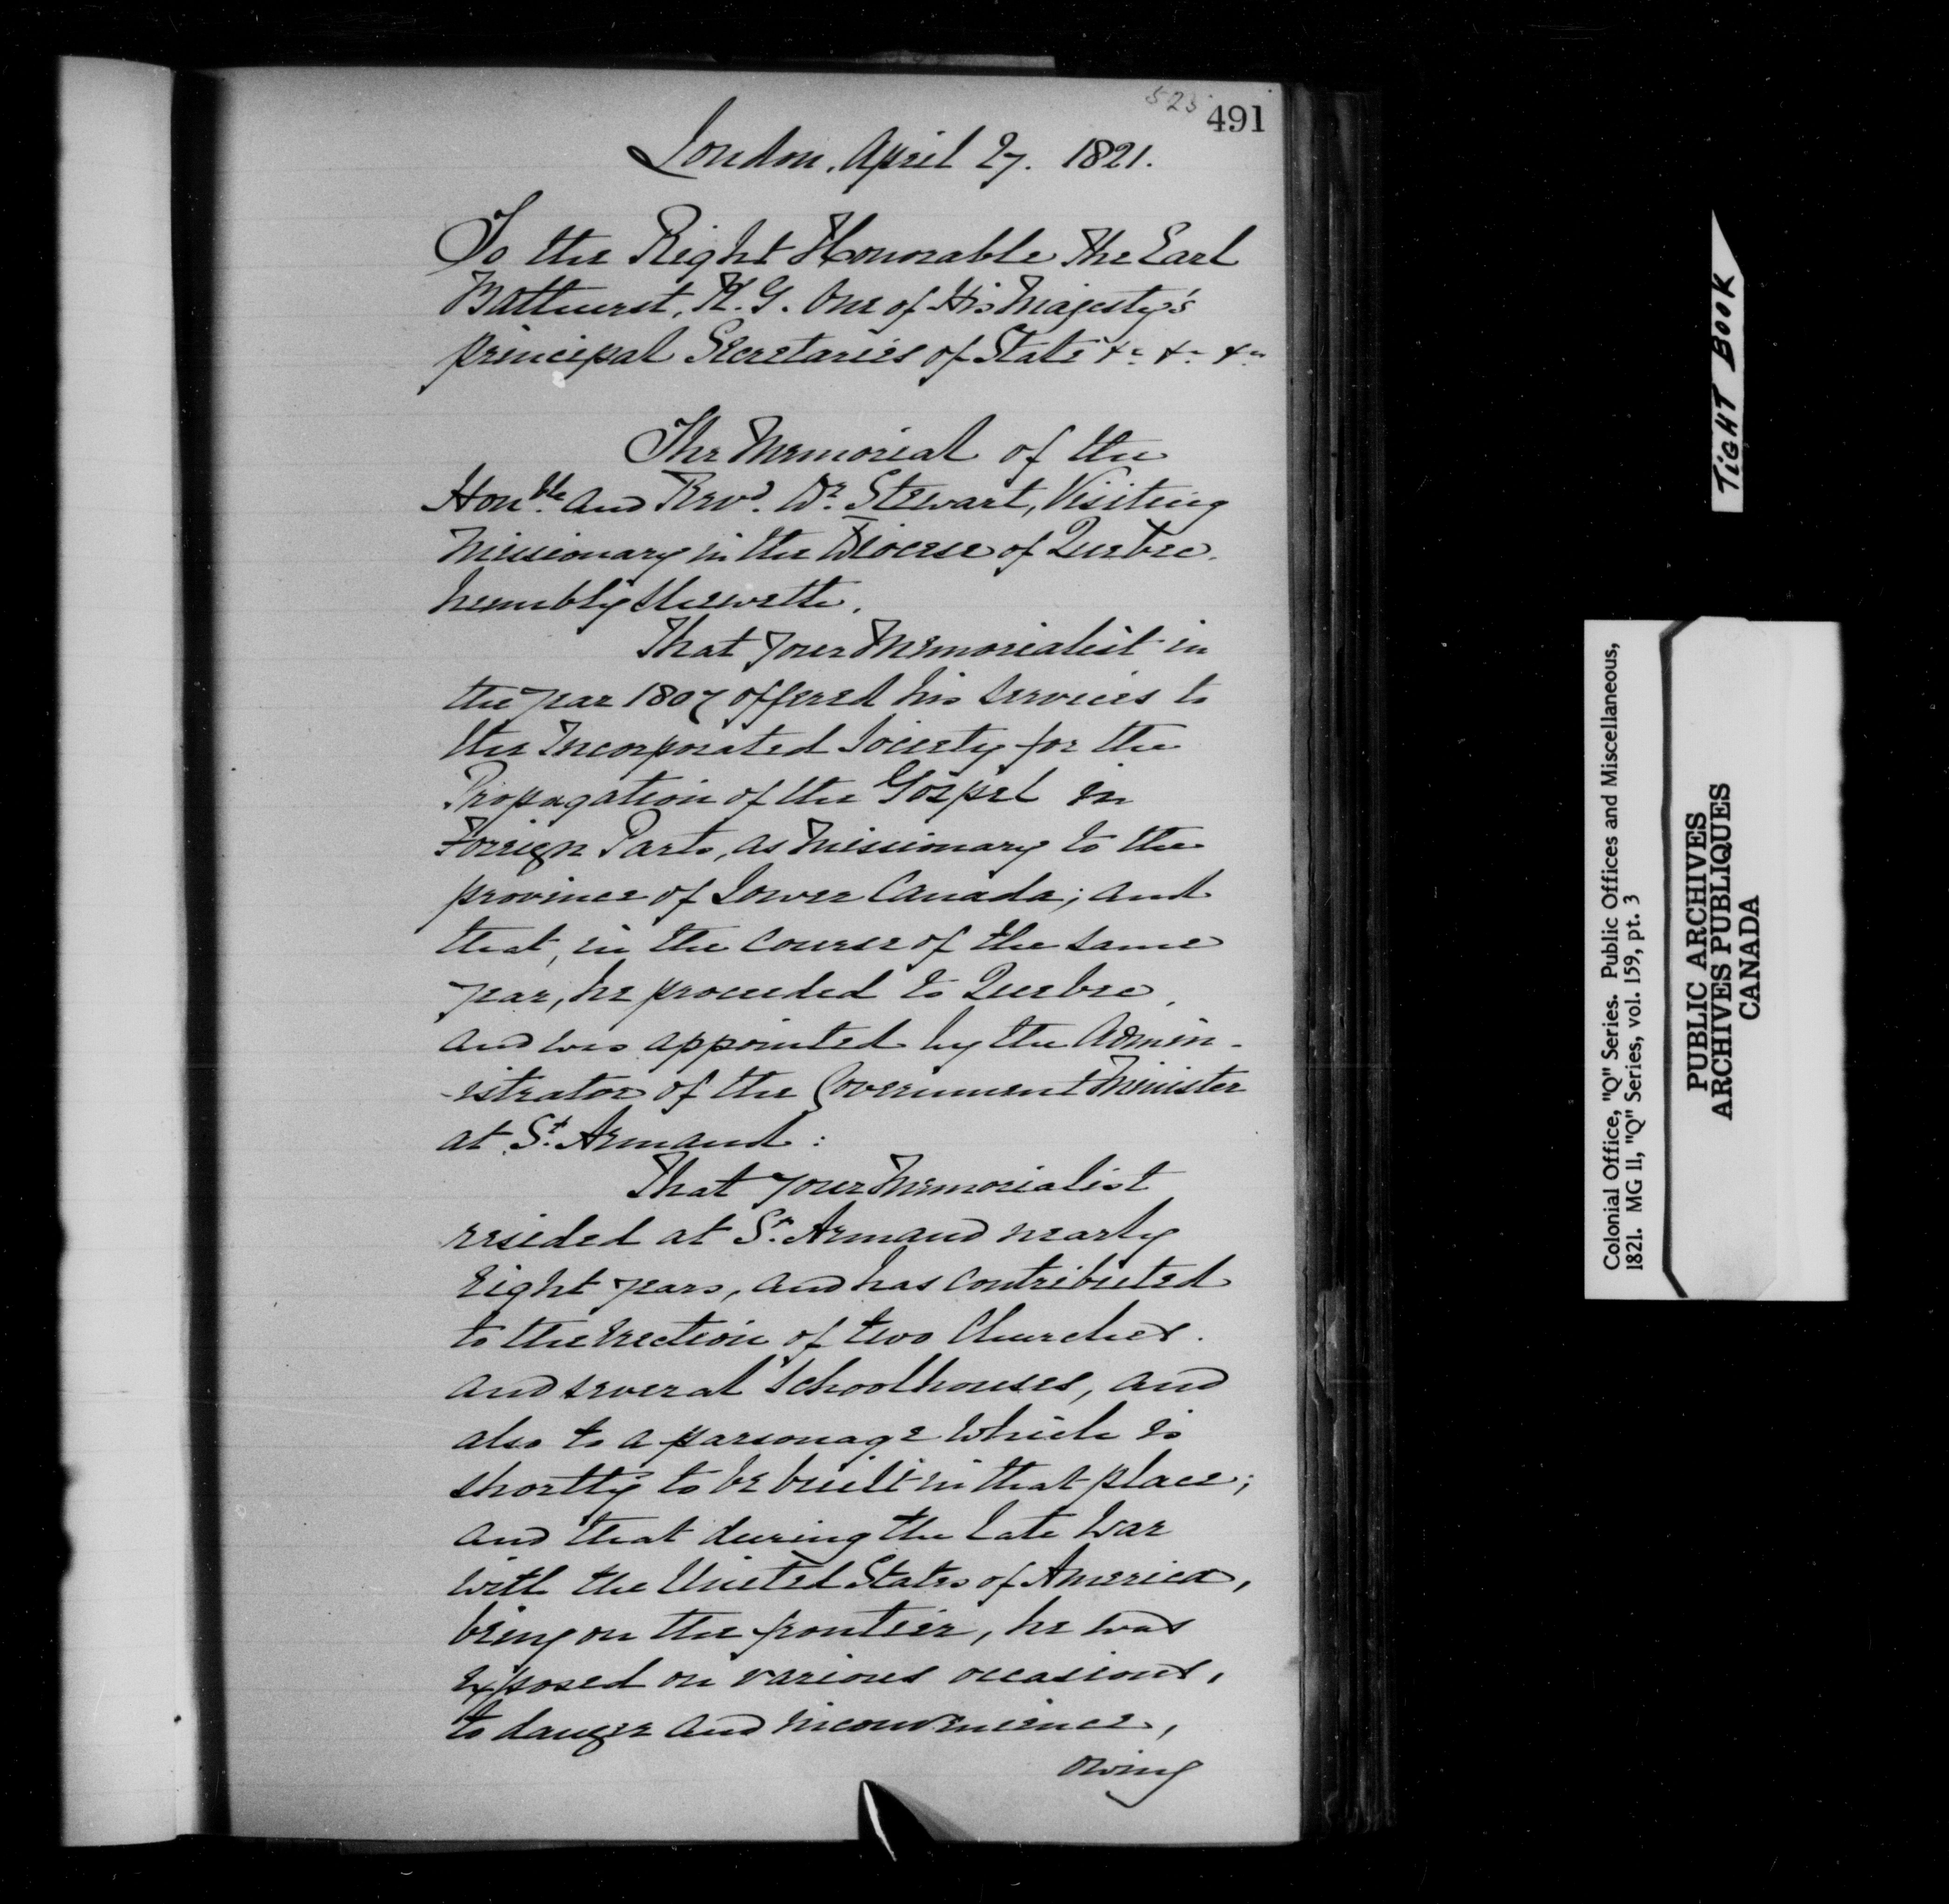 525 491
London, April 27. 1821.
To the Right Honorable The Earl
Bathurst, K. G. One of His Majesty's
principal Secretaries of State &c &c &c
The Memorial of the
Honble and Revd. Dr. Stewart, Visiting
Missionary in the Diocese of Quebec.
humbly Sheweth.
That your Memorialist in
the year 1807 offered his services to
the Incorporated Society for the
Propagation of the Gospel in
Foreign Parts, as Missionary to the
province of Lower Canada; and
that, in the course of the same
year, he proceeded to Quebec,
and was appointed by the Admin-
-istrator of the Government Minister
at St. Armand:
That your Memorialist
resided at St. Armand nearly
Eight years, and has contributed
to the Erection of two Churches.
and several Schoolhouses, and
also to a parsonage which is
shortly to be built in that place;
and that during the late War
with the United States of America,
being on the frontier, he was
exposed on various occasions,
to danger and inconvenience,
owing
TIGHT BOOK
Colonial Office, "Q" Series. Public Offices and Miscellaneous,
1821. MG 11, "Q" Series, vol. 159, pt. 3
PUBLIC ARCHIVES
ARCHIVES PUBLIQUES
CANADA